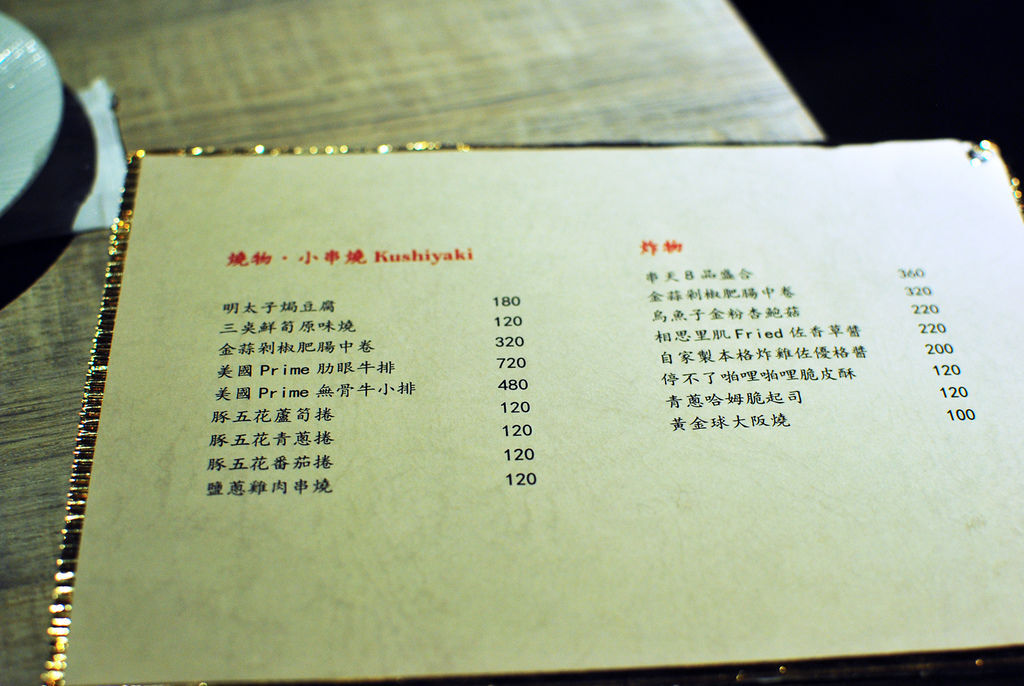 燒物・小串燒 Kushiyaki
明太子焗豆腐 180
三夾鮮筍原味燒 120
金蒜剁椒肥腸中卷 320
美國 Prime 肋眼牛排 720
美國 Prime 無骨牛小排 480
豚五花蘆筍捲 120
豚五花青蔥捲 120
豚五花番茄捲 120
鹽蔥雞肉串燒 120
炸物
串天8品盛合 360
金蒜剁椒肥腸中卷 320
烏魚子金粉杏鮑菇 220
相思里肌Fried佐香草醬 220
自家製本格炸雞佐優格醬 200
停不了啪哩啪哩脆皮酥 120
青蔥哈姆脆起司 120
黃金球大阪燒 100